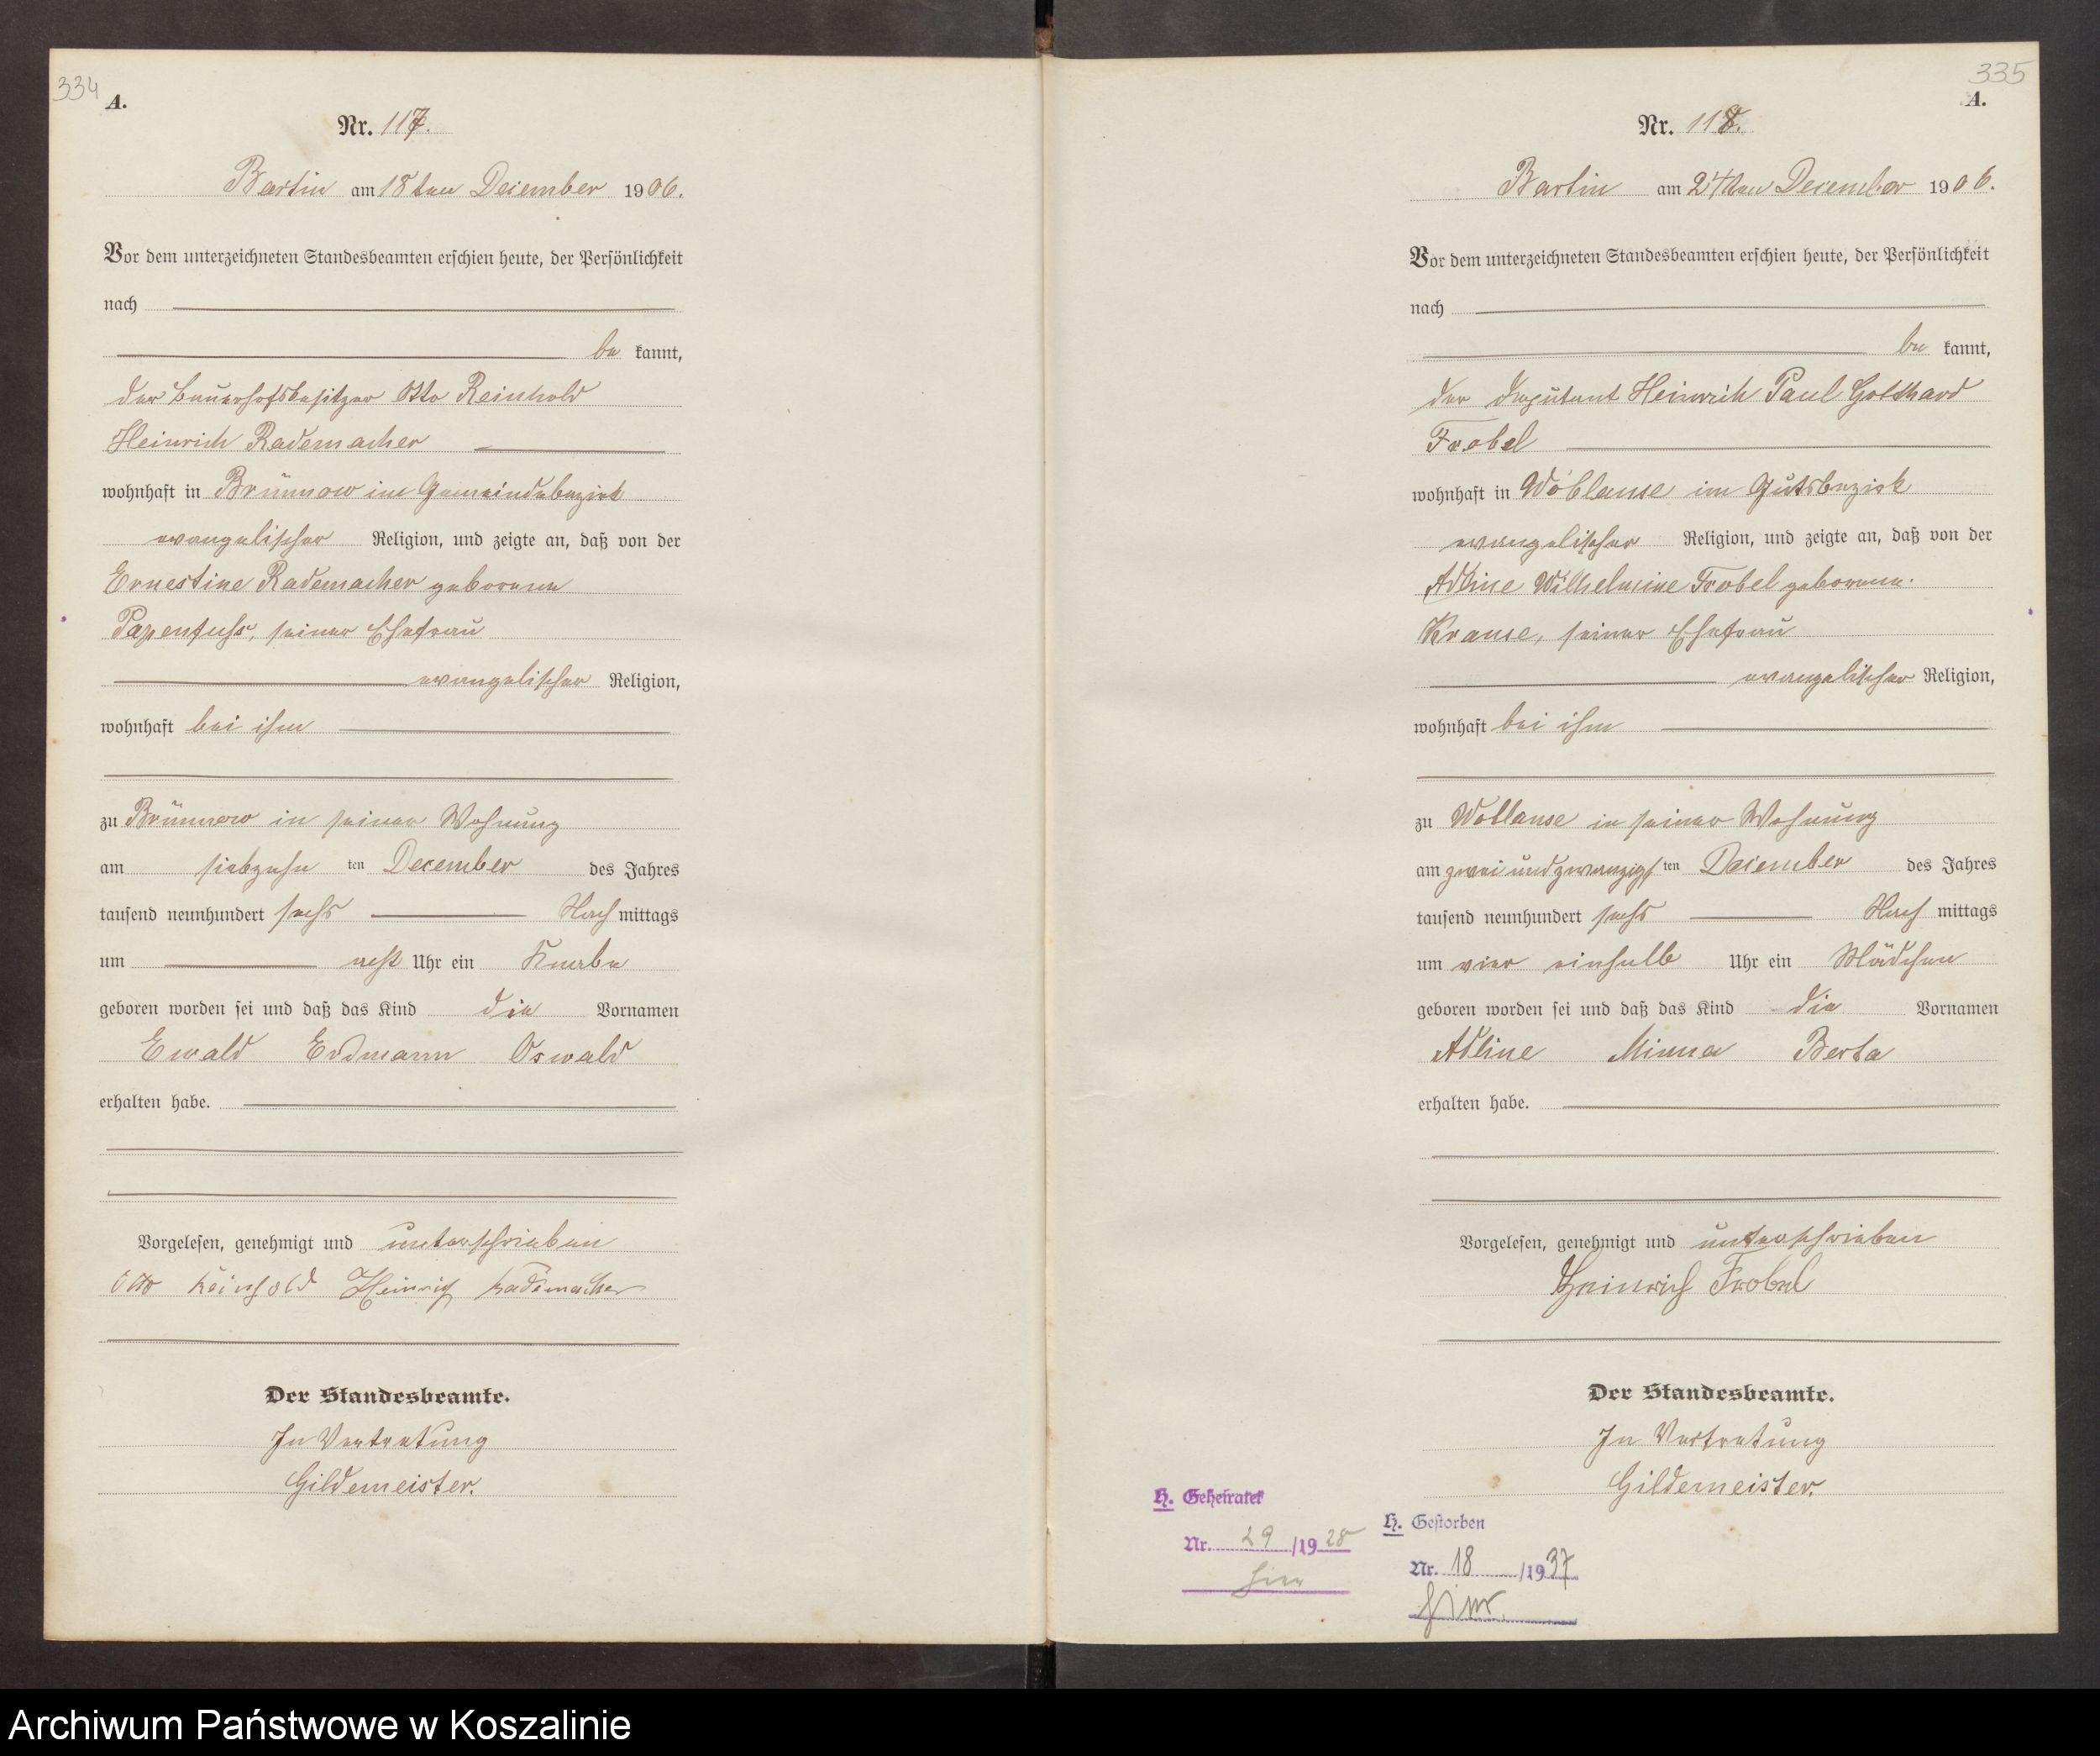 334
A.
Nr. 117.
Bartin am 18ten December 1906.
Vor dem unterzeichneten Standesbeamten erschien heute, der Persönlichkeit
nach
be kannt,
der Bauerhofsbesitzer Otto Reinhold
Heinrich Rademacher
wohnhaft in Brünnow im Gemeindebezirk
evangelischer Religion, und zeigte an, daß von der
Ernestine Rademacher geborene
Papenfuhs, seiner Ehefrau
evangelischer Religion,
wohnhaft bei ihm
zu Brünnow in seiner Wohnung
am siebzehn ten December des Jahres
tausend neunhundert sechs Nach mittags
um acht Uhr ein Knabe
geboren worden sei und daß das Kind die Vornamen
Ewald Erdmann Oswald
erhalten habe.
Vorgelesen, genehmigt und unterschrieben
Otto Reinhold Heinrich Rademacher
Der Standesbeamte.
In Vertretung
Gildemeister.
335
A.
Nr. 118.
Bartin am 24ten December 1906.
Vor dem unterzeichneten Standesbeamten erschien heute, der Persönlichkeit
nach
be kannt,
der Deputant Heinrich Paul Gotthard
Frobel
wohnhaft in Woblanse im Gutsbezirk
evangelischer Religion, und zeigte an, daß von der
Adline Wilhelmine Frobel geborene
Krause, seiner Ehefrau
evangelischer Religion,
wohnhaft bei ihm
zu Woblanse in seiner Wohnung
am zwei und zwanzigs ten December des Jahres
tausend neunhundert sechs Nach mittags
um vier einhalb Uhr ein Mädchen
geboren worden sei und daß das Kind die Vornamen
Adline Minna Berta
erhalten habe.
Vorgelesen, genehmigt und unterschrieben
Heinrich Frobel
Der Standesbeamte.
In Vertretung
Gildemeister.
H. Geheiratet
Nr. 29 /1928
hier
H. Gestorben
Nr. 18 /1937
hier.
Archiwum Państwowe w Koszalinie